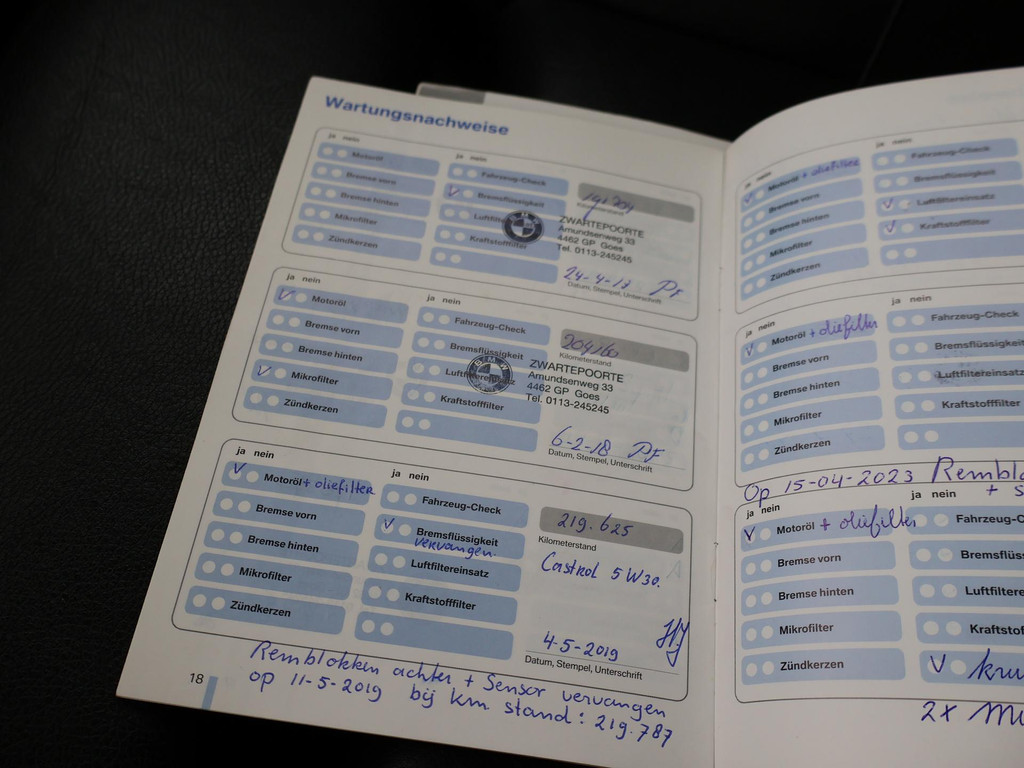 Wartungsnachweise
ja nein
Motoröl
Bremse vorn
Bremse hinten
Mikrofilter
Zündkerzen
ja nein
Fahrzeug-Check
Bremsflüssigkeit
Kraftstofffilter
Kilometerstand
BMW
ZWARTEPOORTE
Amundsenweg 33
4462 GP Goes
Tel. 0113-245245
24-4-17 PF
Datum, Stempel, Unterschrift
ja nein
Motoröl
Bremse vorn
Bremse hinten
Mikrofilter
Zündkerzen
ja nein
Fahrzeug-Check
Bremsflüssigkeit
Luftfiltereinsatz
Kraftstofffilter
204160
Kilometerstand
BMW
ZWARTEPOORTE
Amundsenweg 33
4462 GP Goes
Tel. 0113-245245
6-2-18 PF
Datum, Stempel, Unterschrift
ja nein
Motoröl + oliefilter
Bremse vorn
Bremse hinten
Mikrofilter
Zündkerzen
ja nein
Fahrzeug-Check
Bremsflüssigkeit
vervangen.
Luftfiltereinsatz
Kraftstofffilter
219.625
Kilometerstand
Castrol 5W30.
4-5-2019 HJ
Datum, Stempel, Unterschrift
Remblokken achter + Sensor vervangen
op 11-5-2019 bij km stand: 219.787
18
ja nein
Motoröl + oliefilter
Bremse vorn
Bremse hinten
Mikrofilter
Zündkerzen
ja nein
Fahrzeug-Check
Bremsflüssigkeit
Luftfiltereinsatz
Kraftstofffilter
ja nein
Motoröl + oliefilter
Bremse vorn
Bremse hinten
Mikrofilter
Zündkerzen
ja nein
Fahrzeug-Check
Bremsflüssigkeit
Luftfiltereinsatz
Kraftstofffilter
Op 15-04-2023 Remblo
+ s
ja nein
Motoröl + oliefilter
Bremse vorn
Bremse hinten
Mikrofilter
Zündkerzen
ja nein
Fahrzeug-C
Bremsflüss
Luftfiltere
Kraftsto
2x